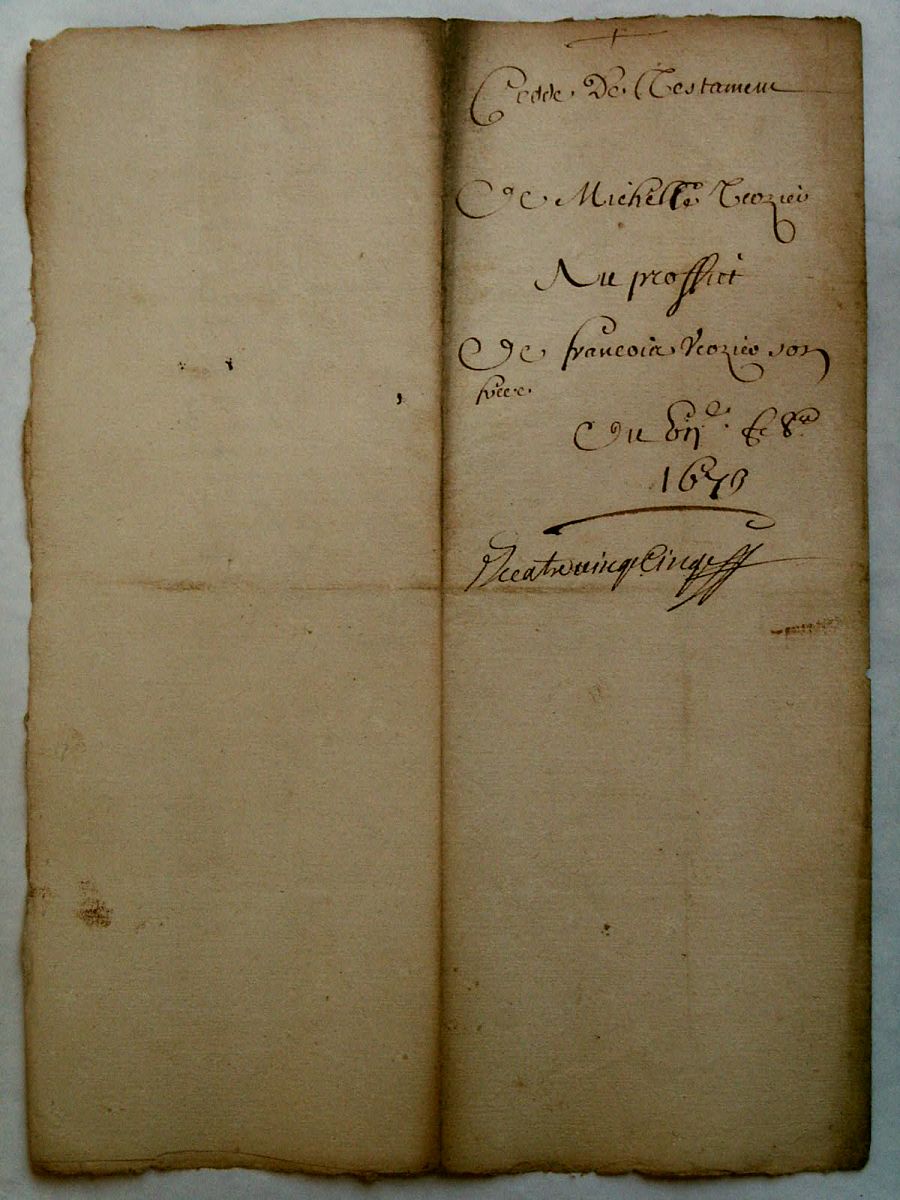 Cedde De Testament
De Michelle Crozier
Au proffict
De francois Crozier son
frere
Du
1679
Quatre vingt Cinq